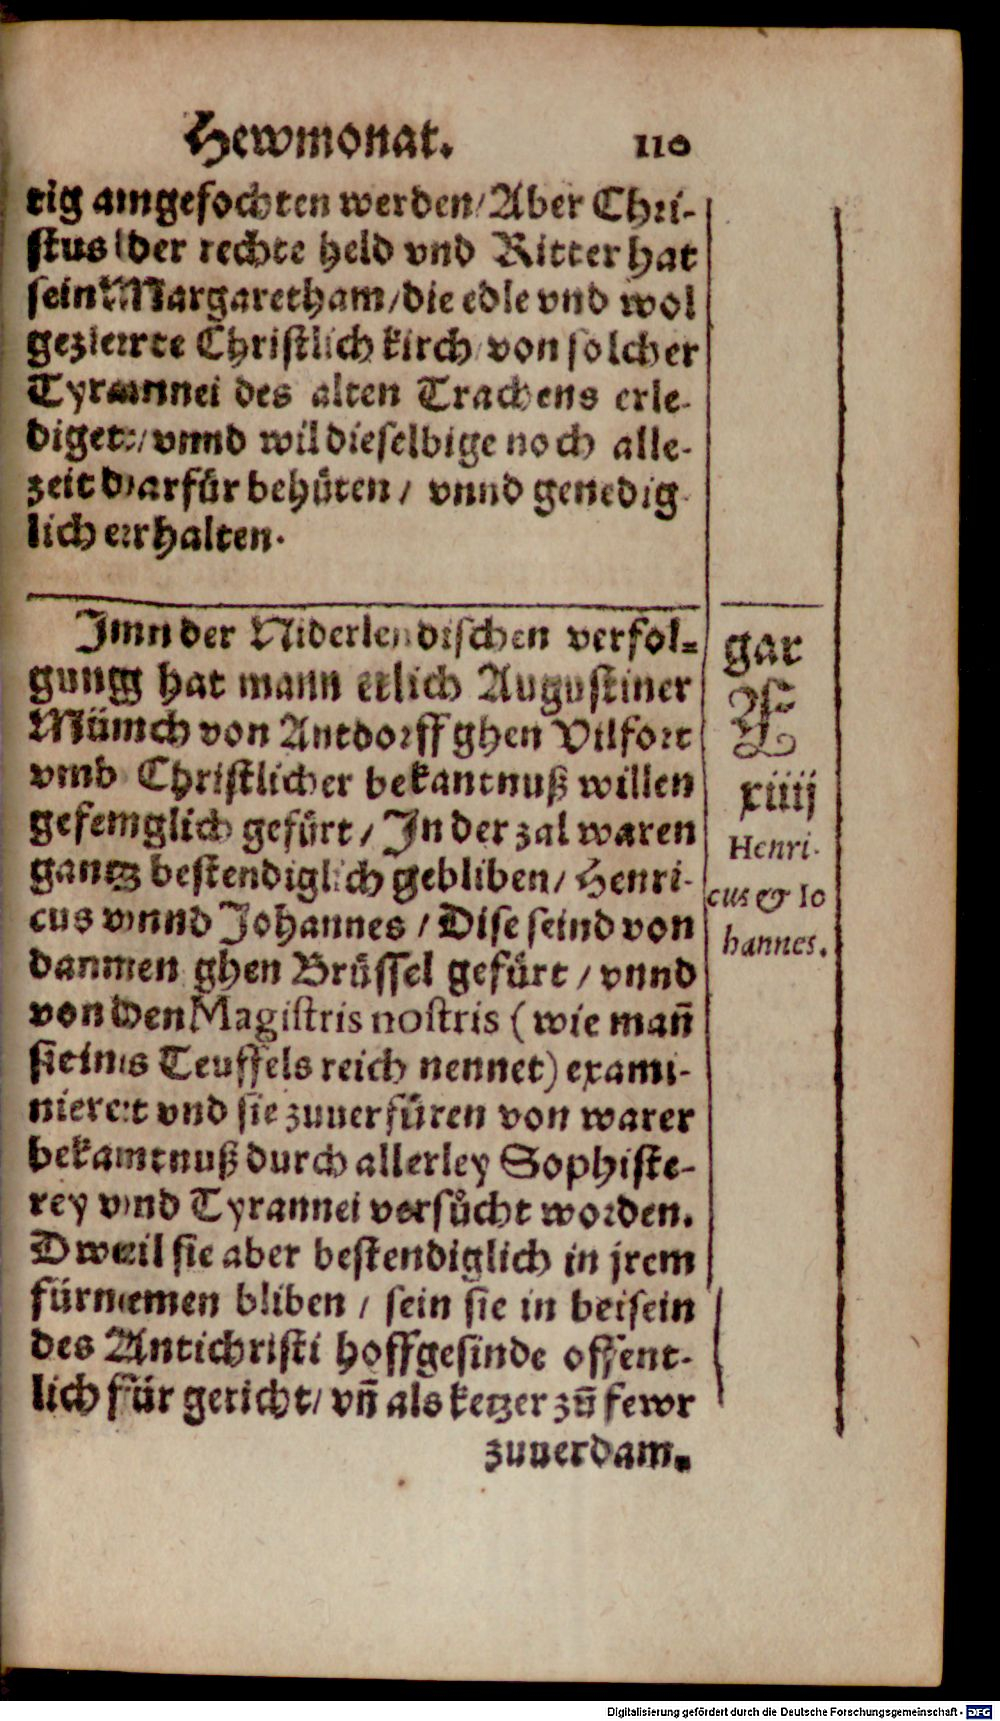 Hewmonat. 110
tig angefochten werden/ Aber Chri-
stus der rechte held vnd Ritter hat
sein Margaretham/ die edle vnd wol
gezierte Christlich kirch von solcher
Tyrannei des alten Trachens erle-
diget/ vnnd wil dieselbige noch alle-
zeit darfür behüten/ vnnd genedig
lich erhalten.
Inn der Niderlendischen verfol-
gung hat mann etlich Augustiner
Münch von Antdorff ghen Vilfort
vmb Christlicher bekantnuß willen
gefenglich gefürt/ In der zal waren
gantz bestendiglich gebliben/ Henri-
cus vnnd Johannes/ Dise seind von
dannen ghen Brüssel gefürt/ vnnd
von den Magistris nostris (wie mañ
sie ins Teuffels reich nennet) exami-
nieret vnd sie zuuerfüren von warer
bekantnuß durch allerley Sophiste-
rey vnd Tyrannei versůcht worden.
Dweil sie aber bestendiglich in jrem
fürnemen bliben/ sein sie in beisein
des Antichristi hoffgesinde offent-
lich für gericht/ vñ als ketzer zũ fewr
zuuerdam.
gar
F
xiiij
Henri-
cus & Io
hannes.
Digitalisierung gefördert durch die Deutsche Forschungsgemeinschaft - DFG